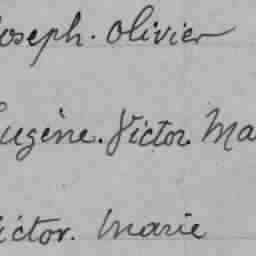 Joseph. Olivier
Eugène. Victor. Ma
Victor. Marie